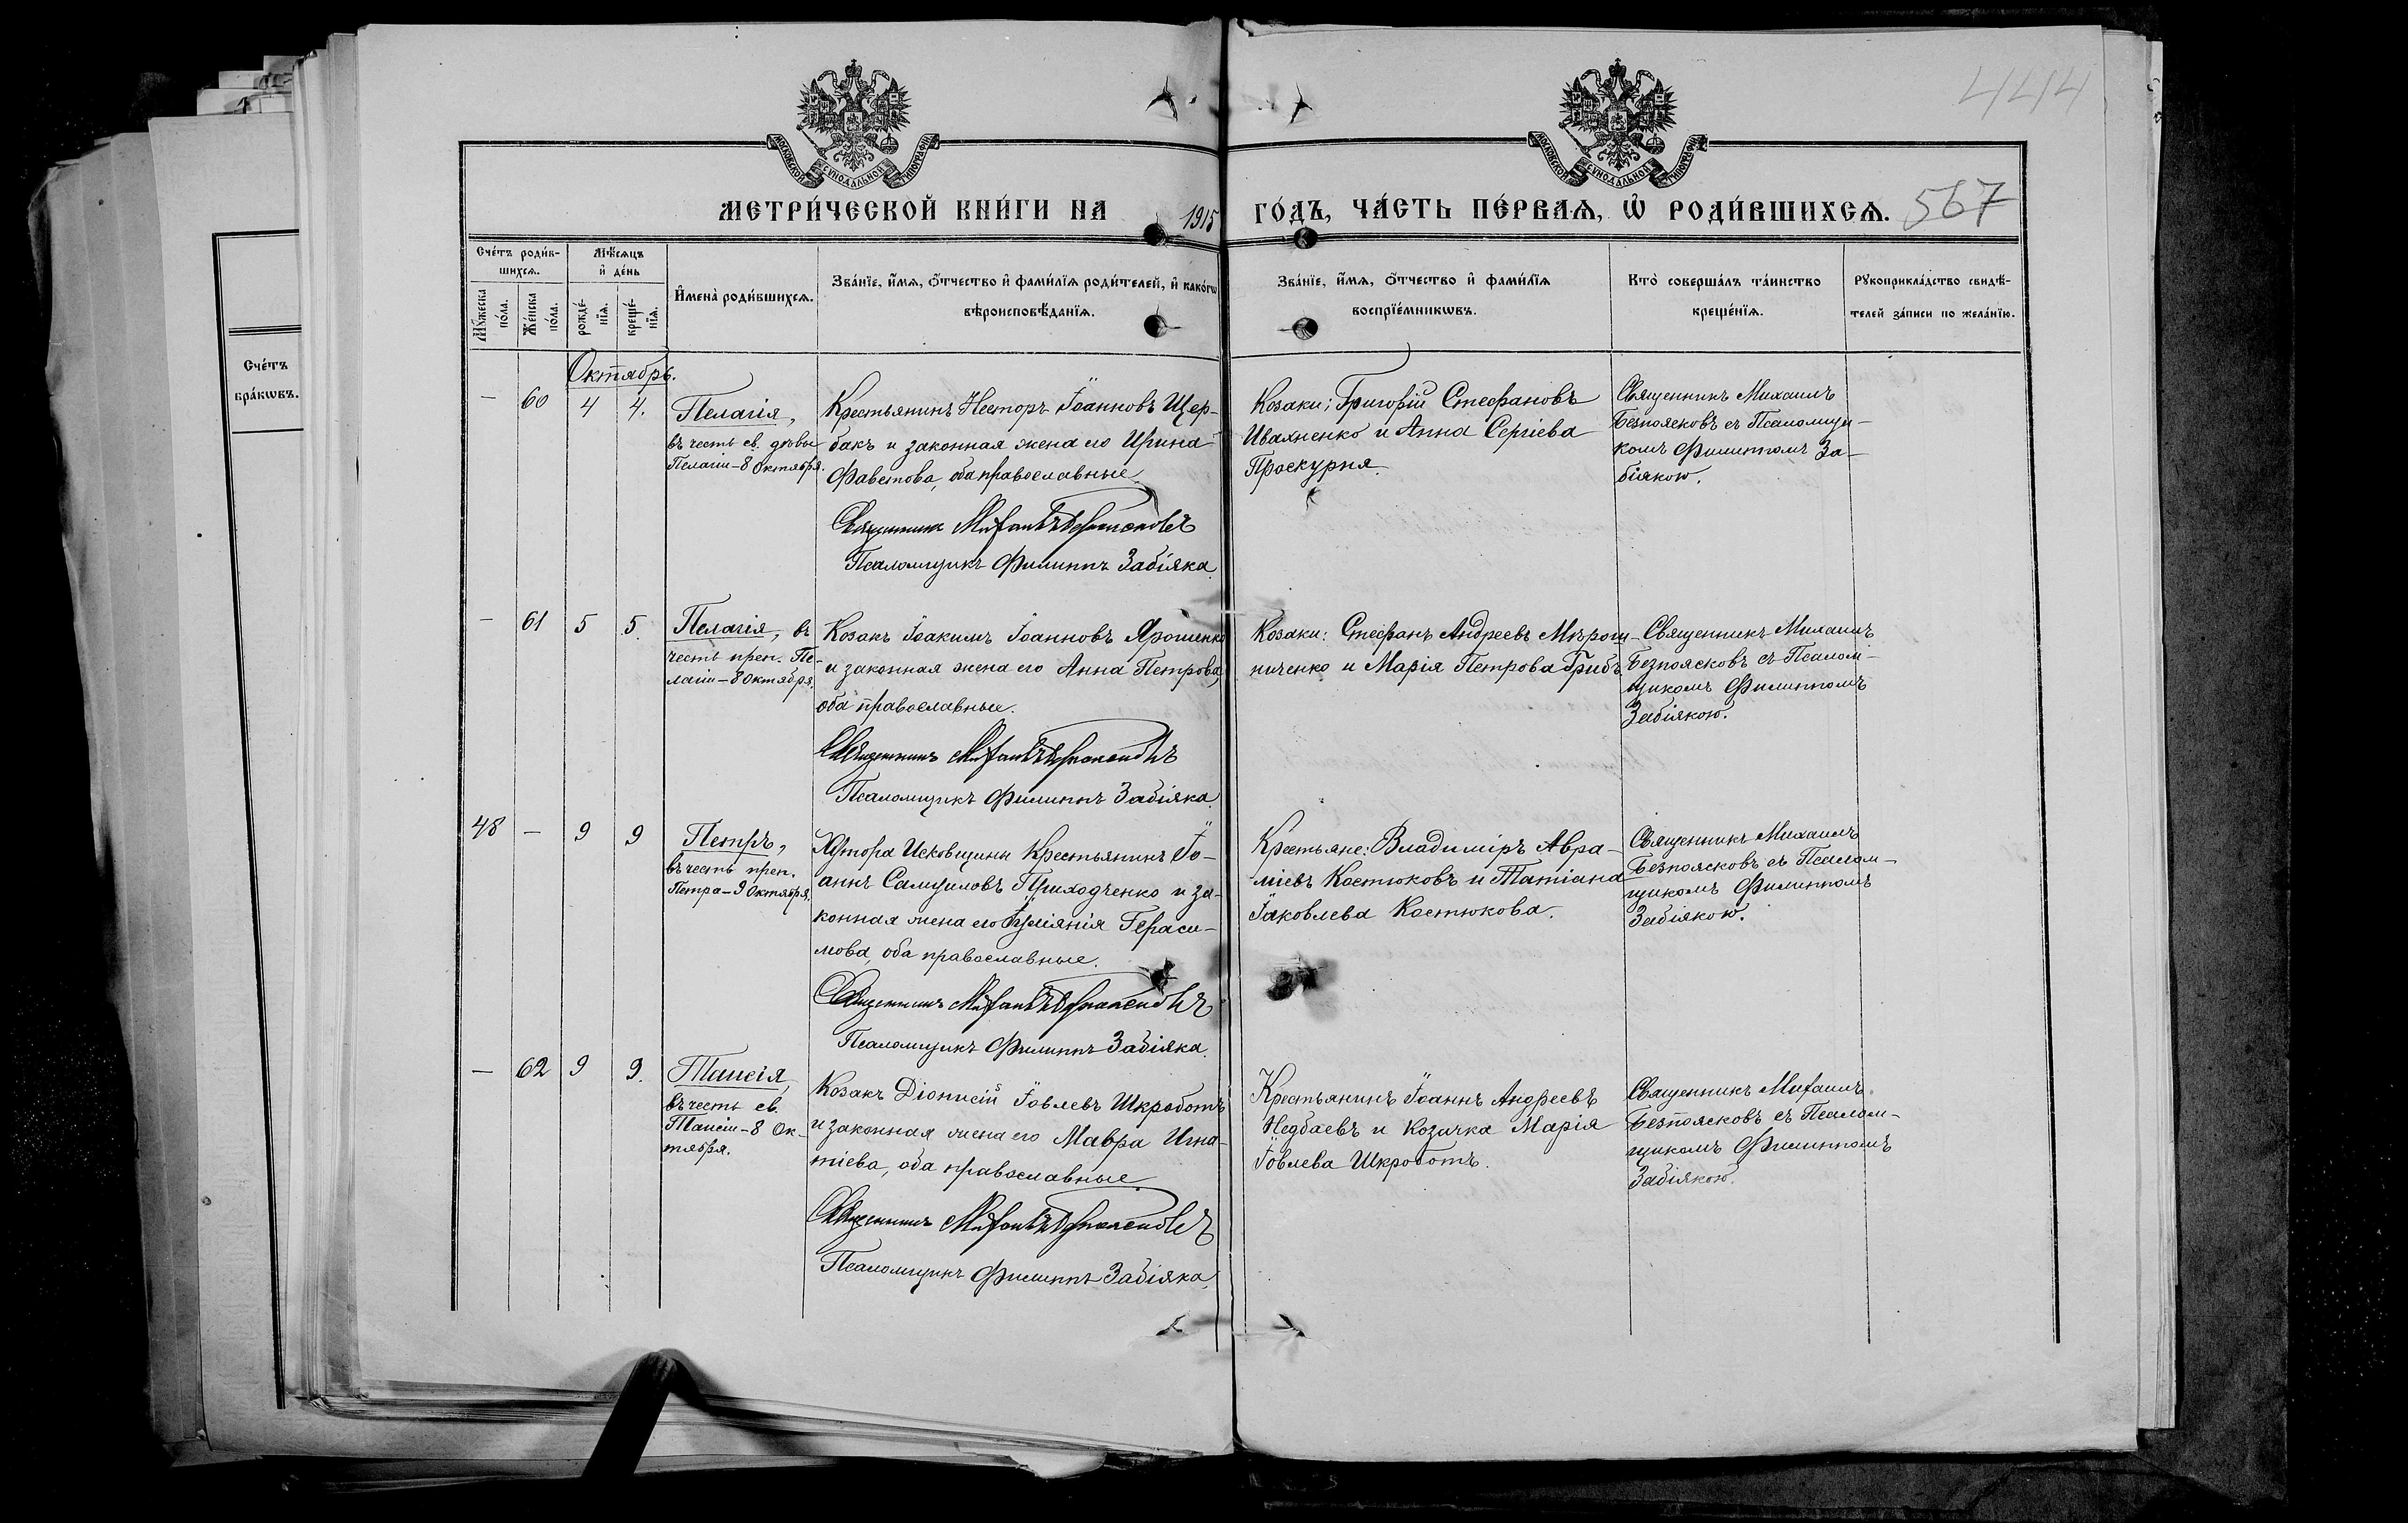 444
МОСКОВСКОЙ СѴНОДАЛЬНОЙ ТИПОГРАФІИ
МОСКОВСКОЙ СѴНОДАЛЬНОЙ ТИПОГРАФІИ
МЕТРИ́ЧЕСКОЙ КНИ́ГИ НА 1915 ГО́ДЪ, ЧА́СТЬ ПЕ́РВАѦ, Ѡ҆ РОДИ́ВШИХСѦ. 567
Сче́тъ роди́в-
шихсѧ.
Мꙋ́жеска
по́ла.
Же́нска
по́ла.
Мѣ́сѧцъ
и҆ де́нь
рожде́-
нїѧ.
креще́-
нїѧ.
И҆мена̀ роди́вшихсѧ.
Зва́нїе, и҆́мѧ, ѻ҆́тчество и҆ фами́лїѧ роди́телей, и҆ како́гѡ
вѣроисповѣ́данїѧ.
Зва́нїе, и҆́мѧ, ѻ҆́тчество и҆ фами́лїѧ
воспрїе́мникѡвъ.
Кто̀ соверша́лъ та́инство
креще́нїѧ.
Рꙋкоприкла́дство свидѣ́-
телей за́писи по жела́нїю.
Сче́тъ
бра́кѡвъ.
Октябрь.
— 60 4 4.
Пелагія,
въ честь св. дѣвы
Пелагіи – 8 Октября.
Крестьянинъ Несторъ Іоанновъ Щер-
бакъ и законная жена его Ирина
Фавстова, оба православные.
Священникъ Михаилъ Безпоясковъ
Псаломщикъ Филиппъ Забіяка.
Козаки: Григорій Стефановъ
Ивахненко и Анна Сергіева
Проскурня.
Священникъ Михаилъ
Безпоясковъ съ Псаломщи-
комъ Филиппомъ За-
біякою.
— 61 5 5.
Пелагія, въ
честь преп. Пе-
лагіи – 8 Октября.
Козакъ Іоакимъ Іоанновъ Ярошенко
и законная жена его Анна Петрова,
оба православные.
Священникъ Михаилъ Безпоясковъ
Псаломщикъ Филиппъ Забіяка.
Козаки: Стефанъ Андреевъ Мѣрош-
ниченко и Марія Петрова Грибъ.
Священникъ Михаилъ
Безпоясковъ съ Псалом-
щикомъ Филиппомъ
Забіякою.
48 — 9 9
Петръ,
въ честь преп.
Петра – 9 Октября.
Хутора Исковщины Крестьянинъ Іо-
аннъ Самуиловъ Приходченко и за-
конная жена его Іуліянія Гераси-
мова, оба православные.
Священникъ Михаилъ Безпоясковъ
Псаломщикъ Филиппъ Забіяка.
Крестьяне: Владиміръ Авра-
міевъ Костюковъ и Татіана
Іаковлева Костюкова.
Священникъ Михаилъ
Безпоясковъ съ Псалом-
щикомъ Филиппомъ
Забіякою.
— 62 9 9.
Таисія,
въ честь св.
Таисіи – 8 Ок-
тября.
Козакъ Діонисій Іовлевъ Шкработъ
и законная жена его Мавра Игна-
тіева, оба православные.
Священникъ Михаилъ Безпоясковъ
Псаломщикъ Филиппъ Забіяка.
Крестьянинъ Іоаннъ Андреевъ
Недбаевъ и козачка Марія
Іовлева Шкроботъ.
Священникъ Михаилъ
Безпоясковъ съ Псалом-
щикомъ Филиппомъ
Забіякою.